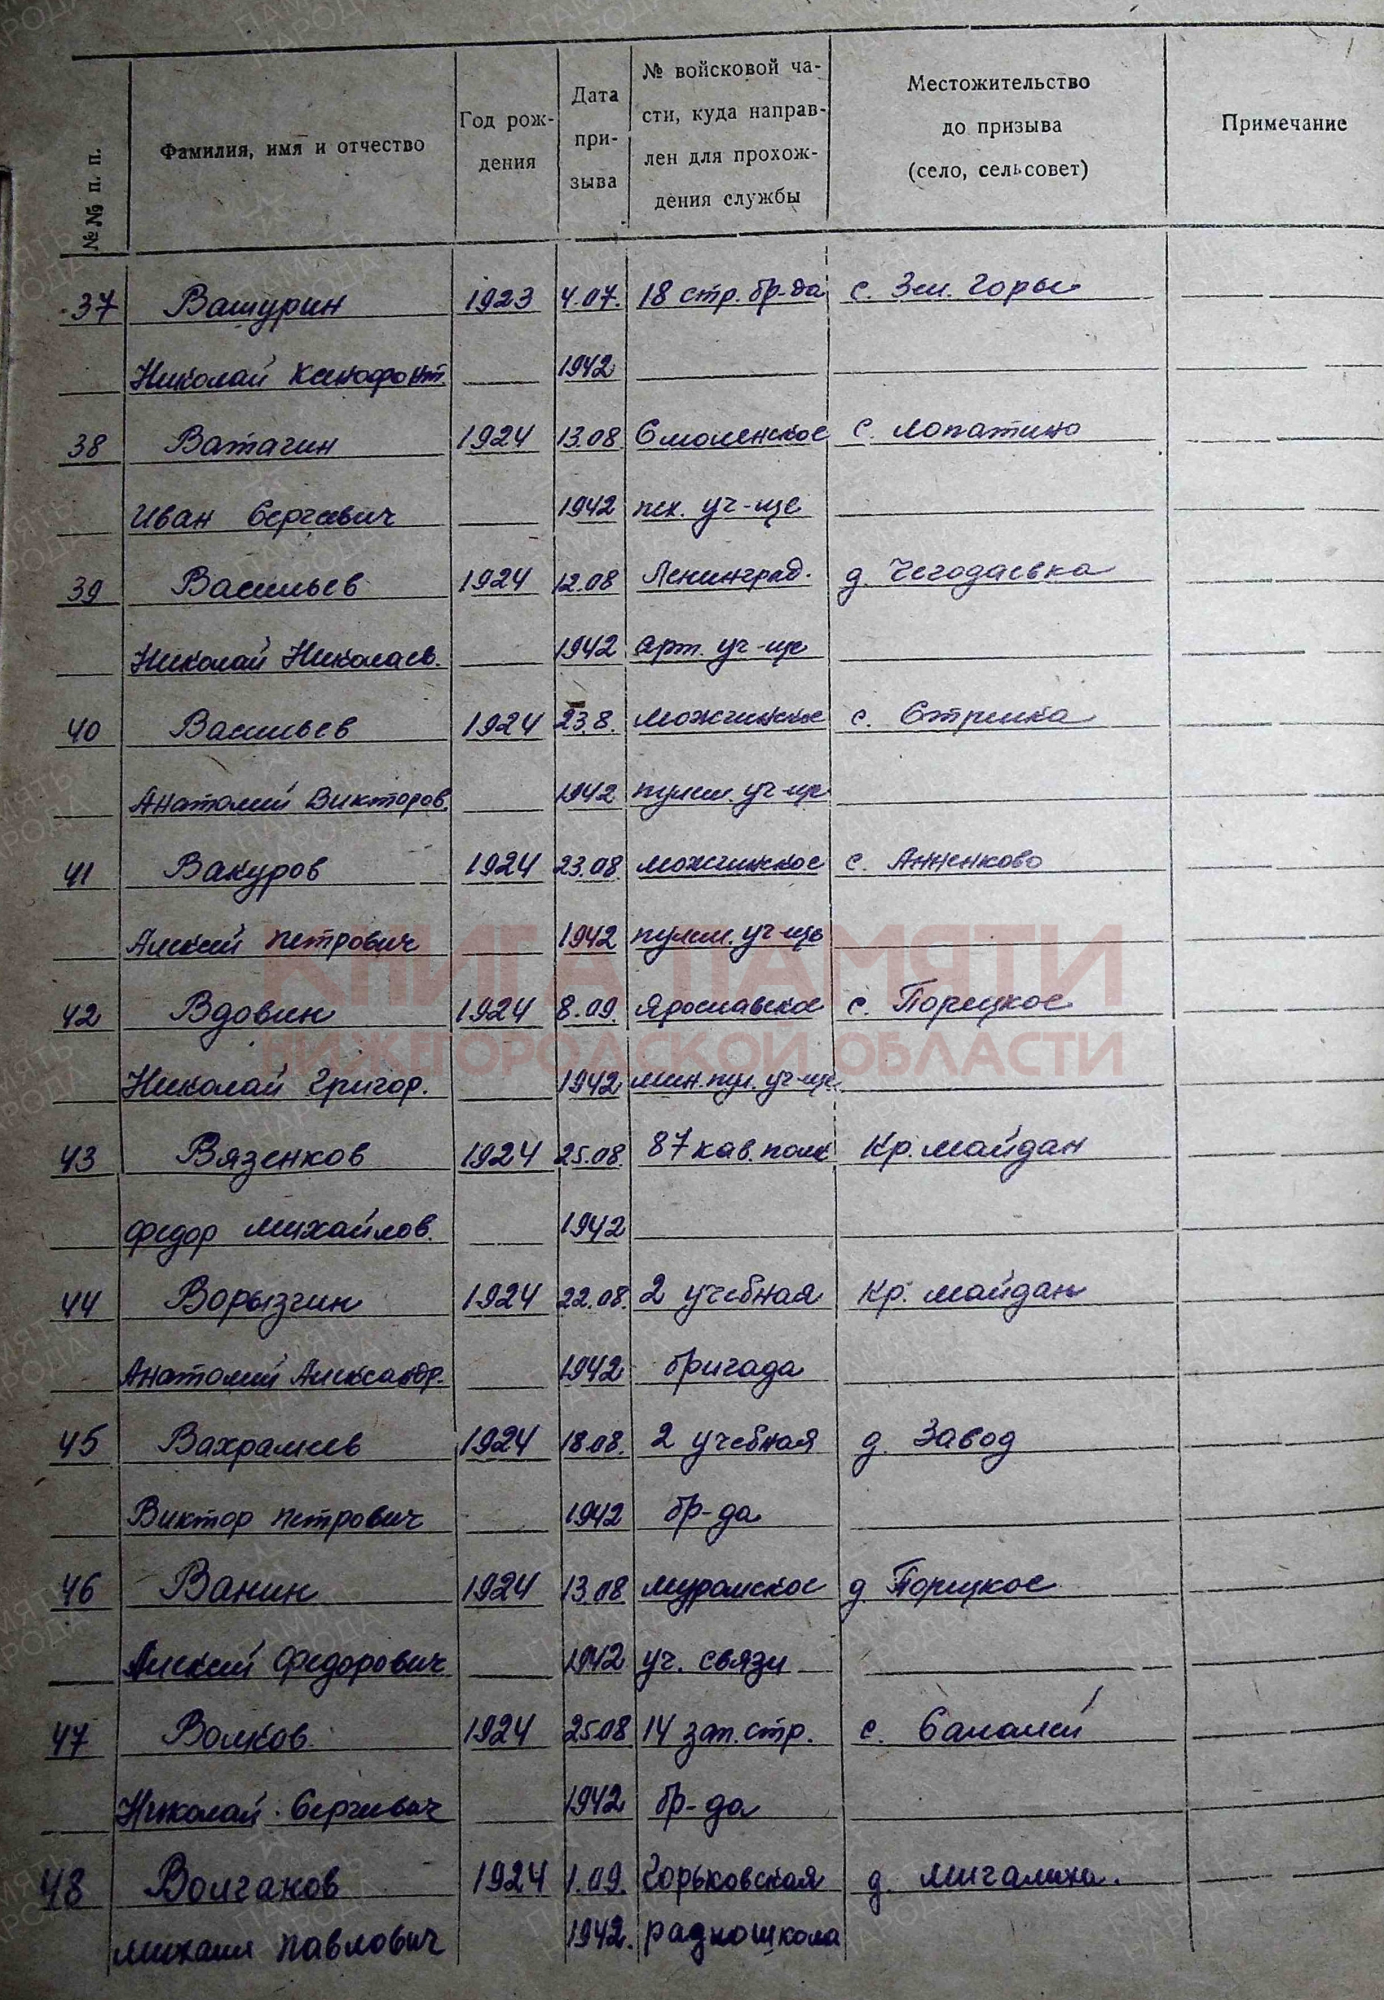 №№ п. п.
Фамилия, имя и отчество
Год рож-
дения
Дата
при-
зыва
№ войсковой ча-
сти, куда направ-
лен для прохож-
дения службы
Местожительство
до призыва
(село, сельсовет)
Примечание
37 Вашурин 1923 4.07. 18 стр. бр-да с. Зел. Горы
Николай Ксенофонт. 1942
38 Ватагин 1924 13.08 Смоленское с. Лопатино
Иван Сергеевич 1942 пех. уч-ще
39 Васильев 1924 12.08 Ленинград. д. Чегодаевка
Николай Николаев. 1942 арт. уч-ще
40 Васильев 1924 23.8. можгинское с. Стрелка
Анатолий Викторов. 1942 пулем. уч-ще
41 Вакуров 1924 23.08 можгинское с. Анненково
Алексей Петрович 1942 пулем. уч-ще
42 Вдовин 1924 8.09. Ярославское с. Порецкое
Николай Григор. 1942 мин. пул. уч-ще
43 Вязенков 1924 25.08. 87 кав. полк Кр. майдан
Федор михайлов. 1942
44 Ворызгин 1924 22.08. 2 учебная Кр. майдан
Анатолий Александр. 1942 бригада
45 Вахрамеев 1924 18.08. 2 учебная д. Завод
Виктор Петрович 1942 бр-да
46 Ванин 1924 13.08 муромское д Порецкое
Алексей Федорович 1942 уч. связи
47 Волков 1924 25.08 14 зап. стр. с. Салалей
Николай Сергеевич 1942 бр-да
48 Волганов 1924 1.09. Горьковская д. мигалиха.
михаил Павлович 1942. радиошкола
КНИГА ПАМЯТИ
НИЖЕГОРОДСКОЙ ОБЛАСТИ